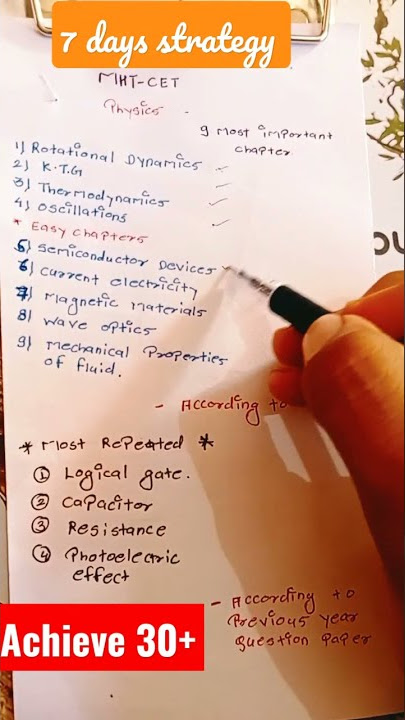 7 days strategy
MHT-CET
Physics -
9 most important
chapter
1) Rotational Dynamics
2) K.T.G
3) Thermodynamics
4) Oscillations
* Easy chapters
5) Semiconductor Devices
6) Current electricity
7) Magnetic Materials
8) Wave optics
9) Mechanical Properties
of fluid.
- According to
* Most Repeated *
1 Logical gate.
2 Capacitor
3 Resistance
4 Photoelectric
effect
- According to
Previous year
Question paper
Achieve 30+